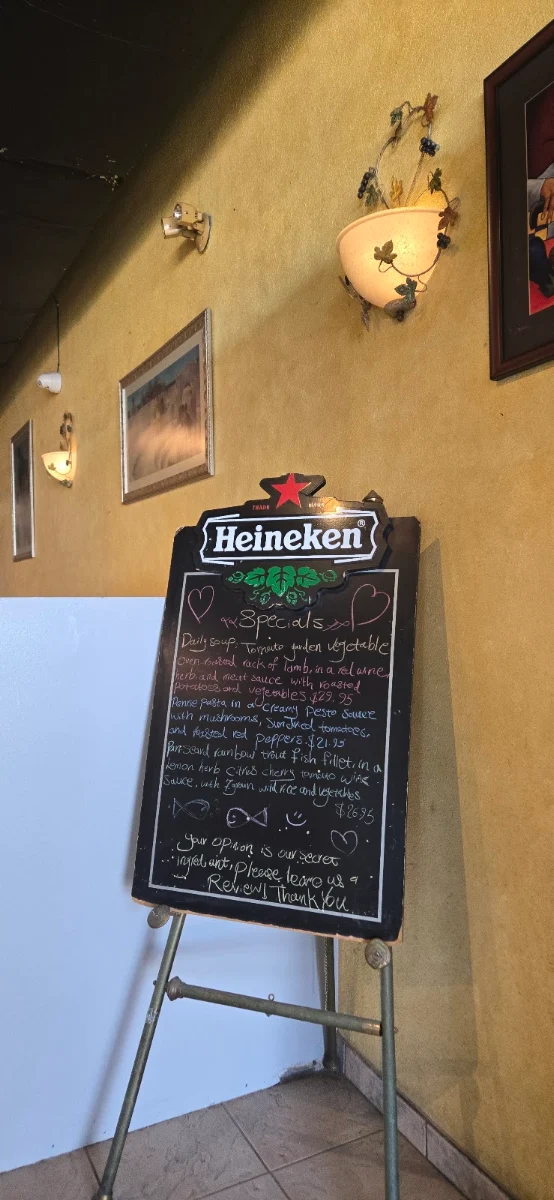 TRADE MARK
Heineken®
Specials
Daily soup. Tomato garden vegetable
Oven roasted rack of lamb, in a red wine,
herb and meat sauce with roasted
potatoes and vegetables $29.95
Penne pasta in a creamy pesto sauce
with mushrooms, Sundried tomatoes,
and roasted red peppers. $21.95
Pan seard rainbow trout fish fillet, in a
lemon herb citrus cherry tomato wine
sauce, with 7 grain wild rice and vegetables
$26.95
Your opinion is our secret
ingrediant, please leave us a
Review! Thank You